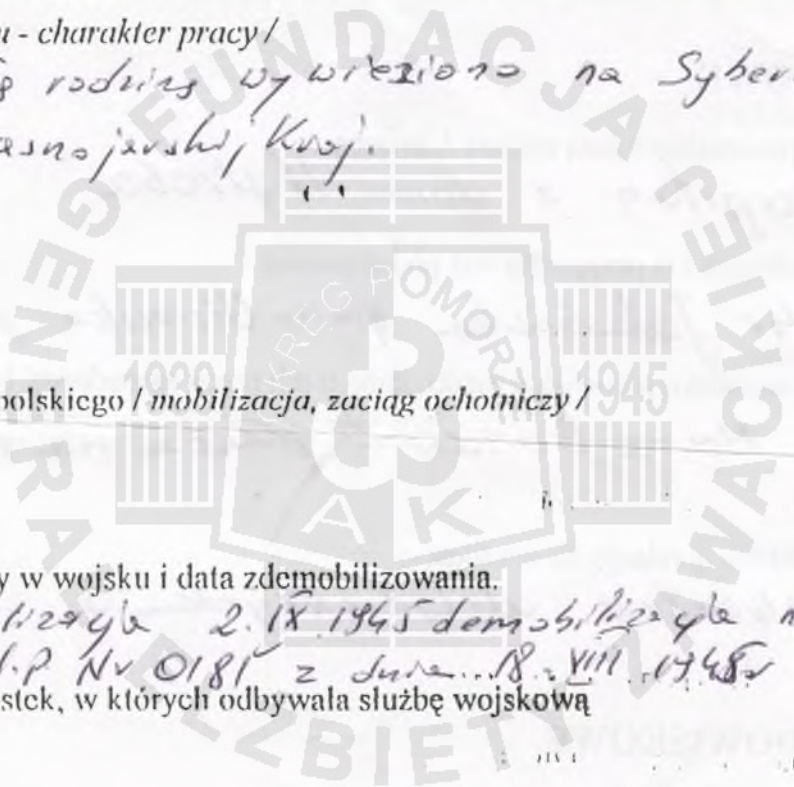 u - charakter pracy /
rodziną wywieziono na Syber
Kraj.
polskiego / mobilizacja, zaciąg ochotniczy /
y w wojsku i data zdemobilizowania.
2.IX.1945 demobilizacja
.P. Nr 0181 z dnia 18. VIII. 1945r
stek, w których odbywała służbę wojskową
FUNDACJA GENERAŁ ELŻBIETY ZAWACKIEJ
OKRĘG POMORZE
1939 1945
AK